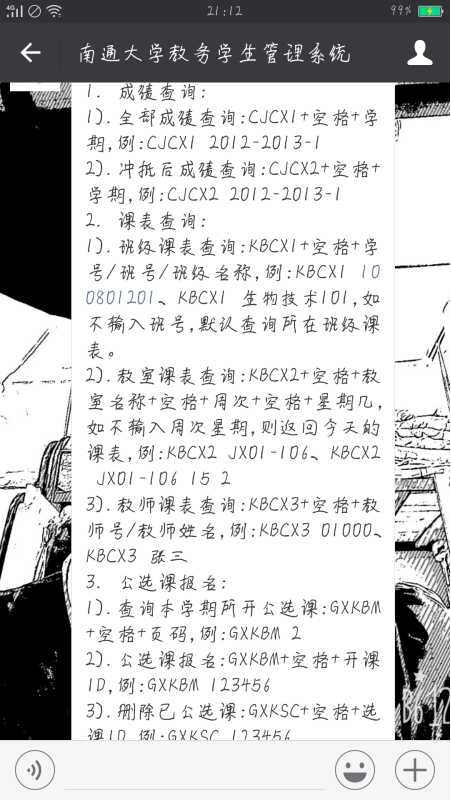 21:12
99%
南通大学教务学生管理系统
1. 成绩查询:
1). 全部成绩查询:CJCX1+空格+学
期,例:CJCX1 2012-2013-1
2). 冲抵后成绩查询:CJCX2+空格+
学期,例:CJCX2 2012-2013-1
2. 课表查询:
1). 班级课表查询:KBCX1+空格+学
号/班号/班级名称,例:KBCX1 10
0801201、KBCX1 生物技术101,如
不输入班号,默认查询所在班级课
表。
2). 教室课表查询:KBCX2+空格+教
室名称+空格+周次+空格+星期几,
如不输入周次星期,则返回今天的
课表,例:KBCX2 JX01-106、KBCX2
JX01-106 15 2
3). 教师课表查询:KBCX3+空格+教
师号/教师姓名,例:KBCX3 01000、
KBCX3 张三
3. 公选课报名:
1). 查询本学期所开公选课:GXKBM
+空格+页码,例:GXKBM 2
2). 公选课报名:GXKBM+空格+开课
ID,例:GXKBM 123456
3). 删除已公选课:GXKSC+空格+选
课ID,例:GXKSC 123456